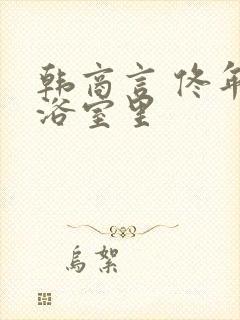 韩商言 佟年
浴室里
乌絮